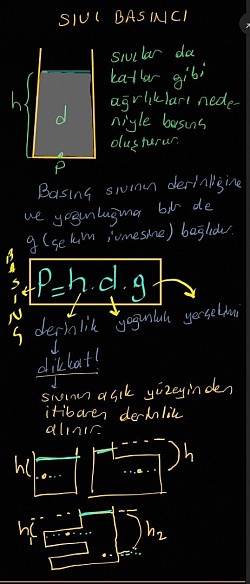 SIVI BASINCI
sıvılar da
katılar gibi
ağırlıkları nede-
niyle basınç
oluşturur.
h
d
P
Basınç sıvının derinliğine
ve yoğunluğuna bir de
g (çekim ivmesine) bağlıdır.
BASINÇ
P=h.d.g
derinlik yoğunluk yerçekimi
dikkat!
sıvının açık yüzeyinden
itibaren derinlik
alınır.
h
h
h₁
h₂